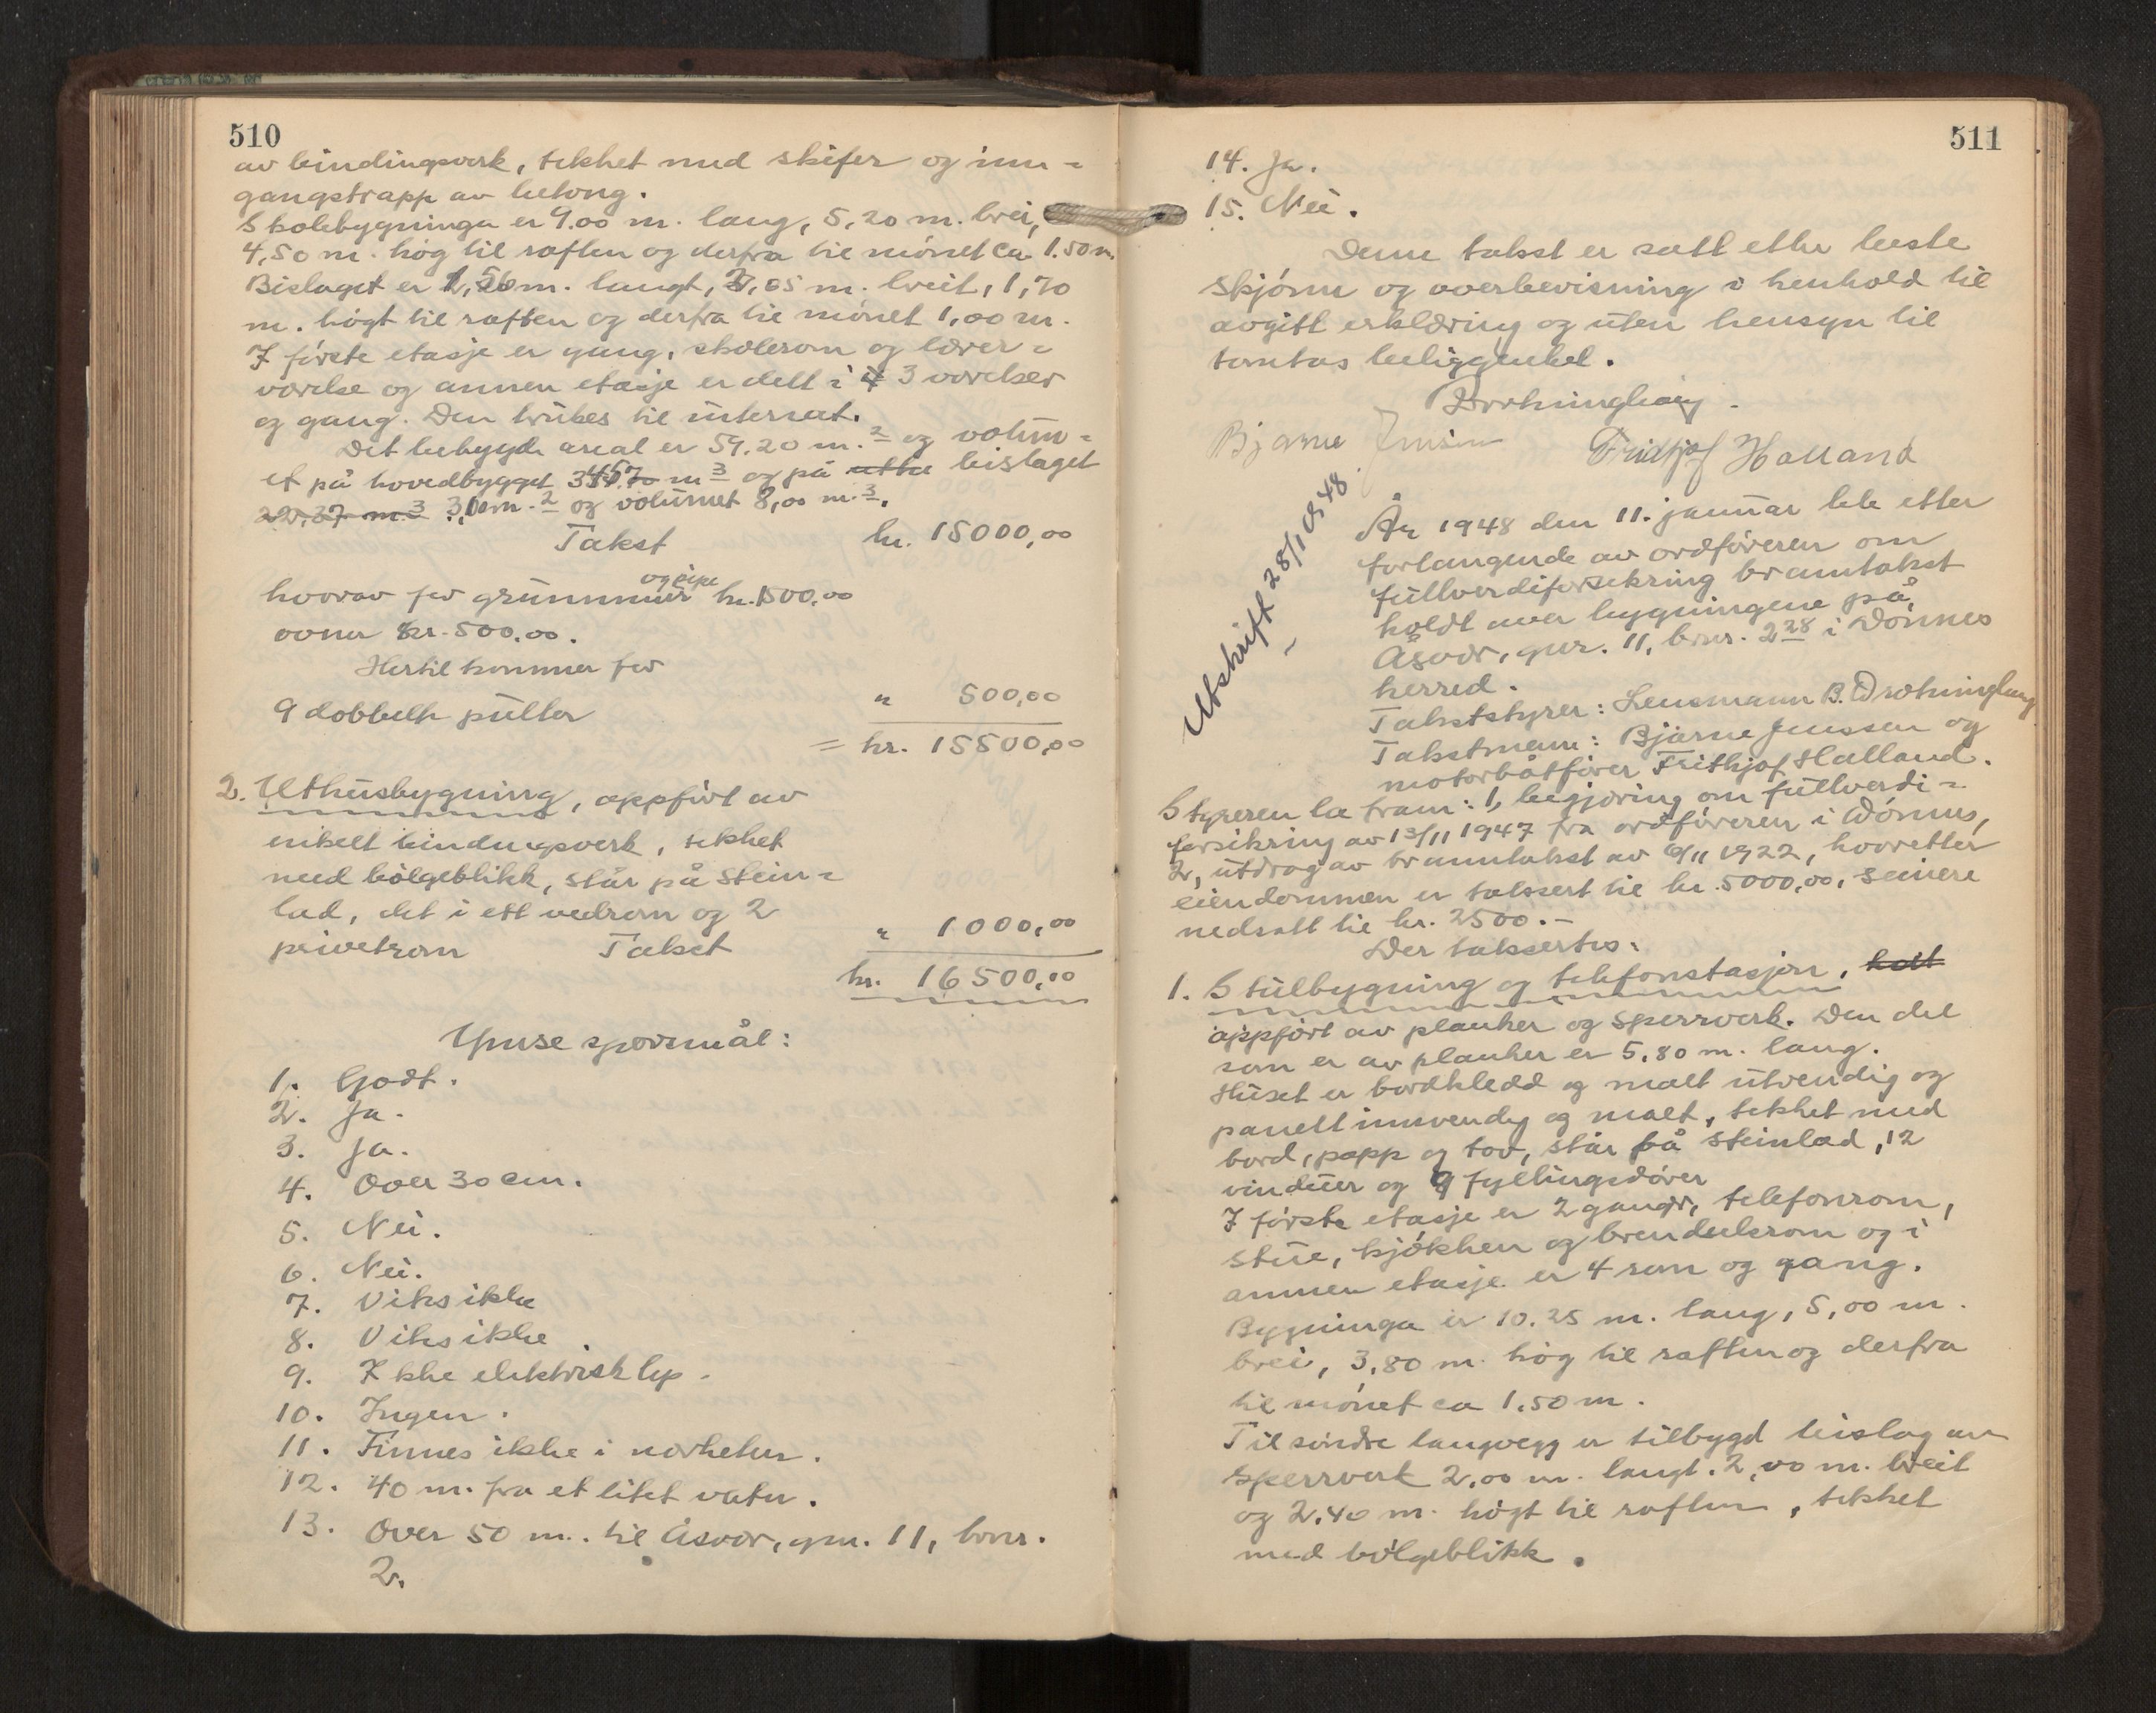 510
av bindingsverk, tekket med skifer og inn-
gangstrapp av betong.
Skolebygninga er 9.00 m. lang, 5,20 m. brei,
4,50 m. høg til raften og derfra til mønet ca. 1.50 m.
Bislaget er 1,50 m. langt, 2,05 m. breit, 1,70
m. høgt til raften og derfra til mønet 1,00 m.
I første etasje er gang, skolerom og lærer-
værelse og annen etasje er delt i 3 værelser
og gang. Den brukes til internat.
Det bebygde areal er 59.20 m.² og volum-
et på hovedbygget m³ og på bislaget
22,37 m.³ 3,10 m.² og volumet 8,00 m.³.
Takst kr. 15000,00
hvorav for grunnmur og pipe kr. 1500,00
ovner kr. 500,00.
Hertil kommer for
9 dobbelte pulter " 500,00
= kr. 15500,00
2. Uthusbygning, oppført av
enkelt bindingsverk, tekket
med bølgeblikk, står på stein-
lad, det i ett vedrom og 2
privetrom Takst " 1000,00
kr. 16500,00
Ymse spørsmål:
1. Godt.
2. Ja.
3. Ja.
4. Over 30 cm.
5. Nei.
6. Nei.
7. Vites ikke
8. Vites ikke
9. Ikke elektrisk lys.
10. Ingen.
11. Finnes ikke i nærheten.
12. 40 m. fra et litet vatn.
13. Over 50 m. til Åsvær, gnr. 11, bnr.
2.
511
14. Ja.
15. Nei.
Denne takst er satt etter beste
skjønn og overbevisning i henhold til
avgitt erklæring og uten hensyn til
tomtas beliggenhet.
Drthinghaug.
Bjarne Jensen Fridtjof Halland
Utskrift 28/1 1948
År 1948 den 11. januar ble etter
forlangende av ordføreren om
fullverdiforsekring branntakst
holdt over bygningene på
Åsvær, gnr. 11, bnr. 2 28 i Dønnes
herred.
Takststyrer: Lensmann B.
Takstmenn: Bjarne Jenssen og
motorbåtfører Frithjof Halland.
Styreren la fram: 1, begjæring om fullverdi-
forsikring av 13/11 1947 fra ordføreren i Dønnes,
2, utdrag av branntakst av 6/11 1922, hvoretter
eiendommen er taksert til kr. 5000,00, seinere
nedsatt til kr. 2500.-
Der taksertes:
1. Stuibygning og telefonstasjon, helt
oppført av planker og sperrverk. Den del
som er av planker er 5,80 m. lang.
Huset er bordkledd og malt utvendig og
panelt innvendig og malt, tekket med
bord, papp og torv, står på steinlad, 12
vinduer og 9 fyllingsdører
I første etasje er 2 ganger, telefonrom,
stue, kjøkken og brendselsrom og i
annen etasje er 4 rom og gang.
Bygninga er 10.25 m. lang, 5,00 m.
brei, 3,80 m. høg til raften og derfra
til mønet ca 1.50 m.
Til søndre langvegg er tilbygd bislag av
sperrverk 2.00 m. langt. 2,00 m. breit
og 2,40 m. høgt til raften, tekket
med bølgeblikk.